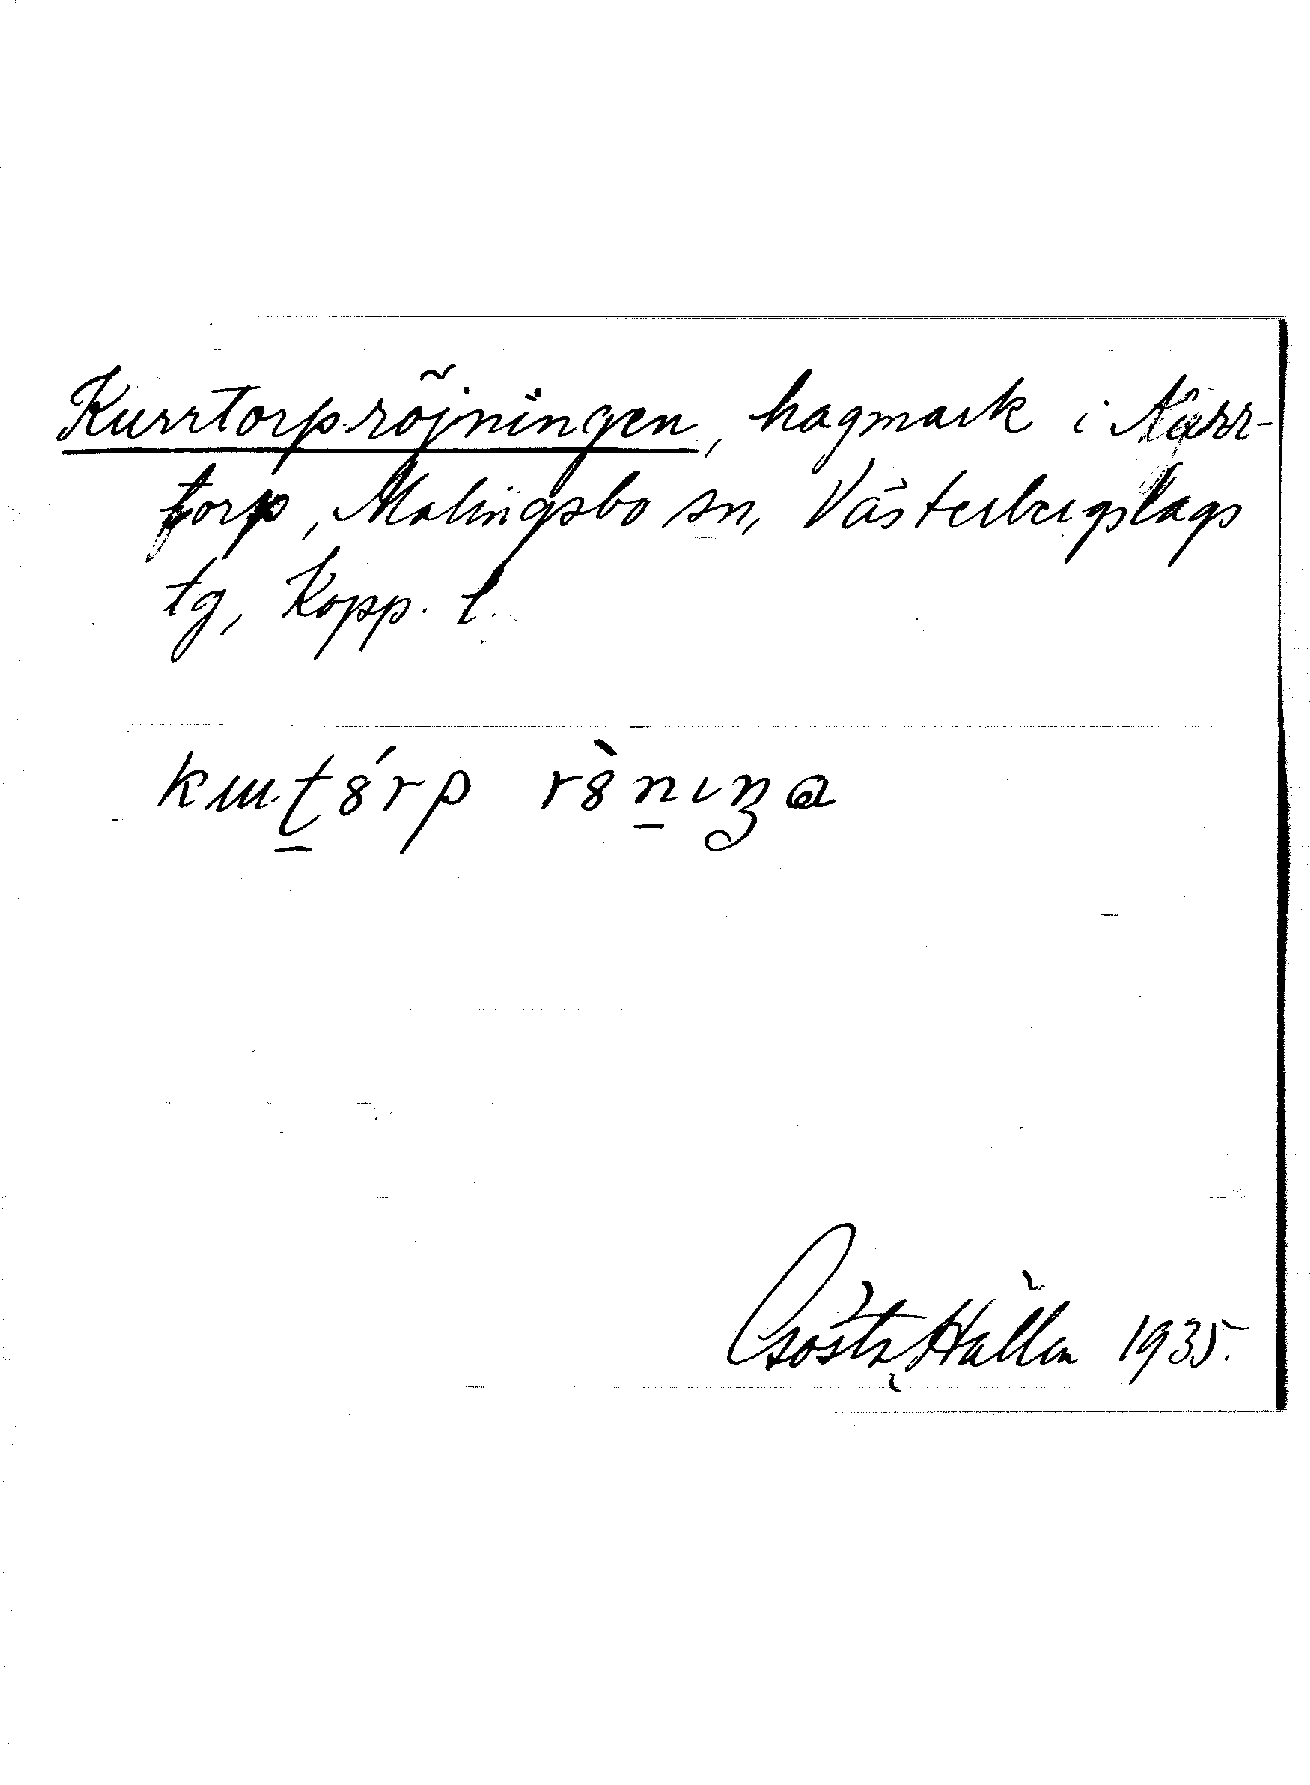 Kurrtorpröjningen, hagmark i Närr-
torp, Malingsbo sn, Västerbergslags
tg, Kopp. l.
kɯṯ8́rp r8̀ṉıŋa
Gösta Hallén 1935.